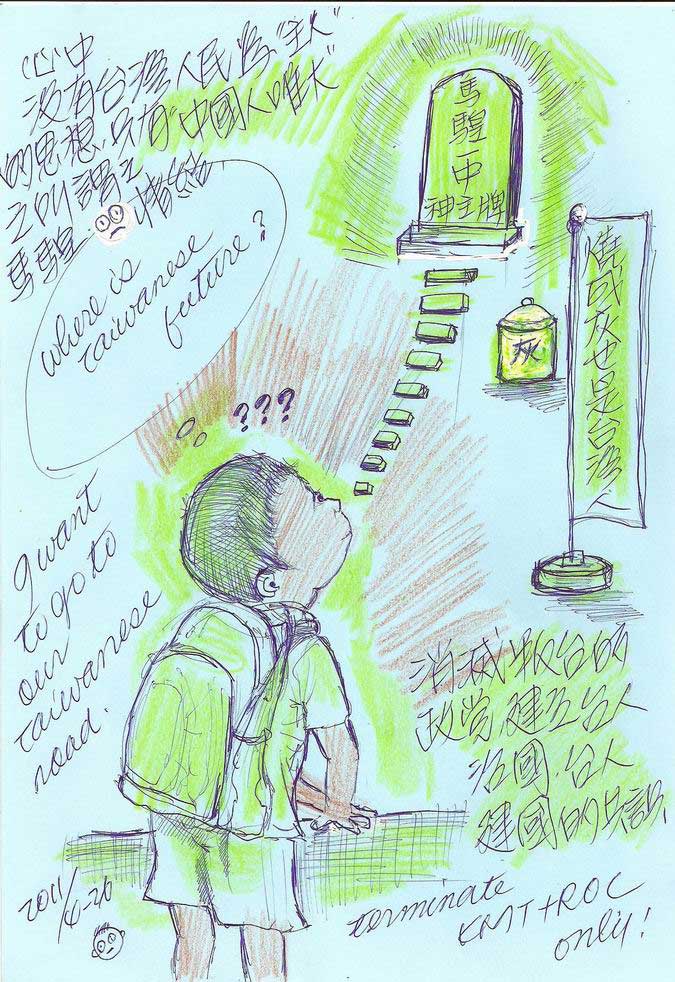 心中
沒有台灣人民為"主人"
的思想.只有"中國人唯大"
之叫謂之
馬騜 情結
where is
taiwanese
future?
馬
騜
一
中
神主牌
燒成灰也是台灣人
灰
???
I want
to go to
our
taiwanese
road.
消滅叛台的
政黨.建立台人
治國.台人
建國的共識
2011/
4-26
terminate
KMT+ROC
only!